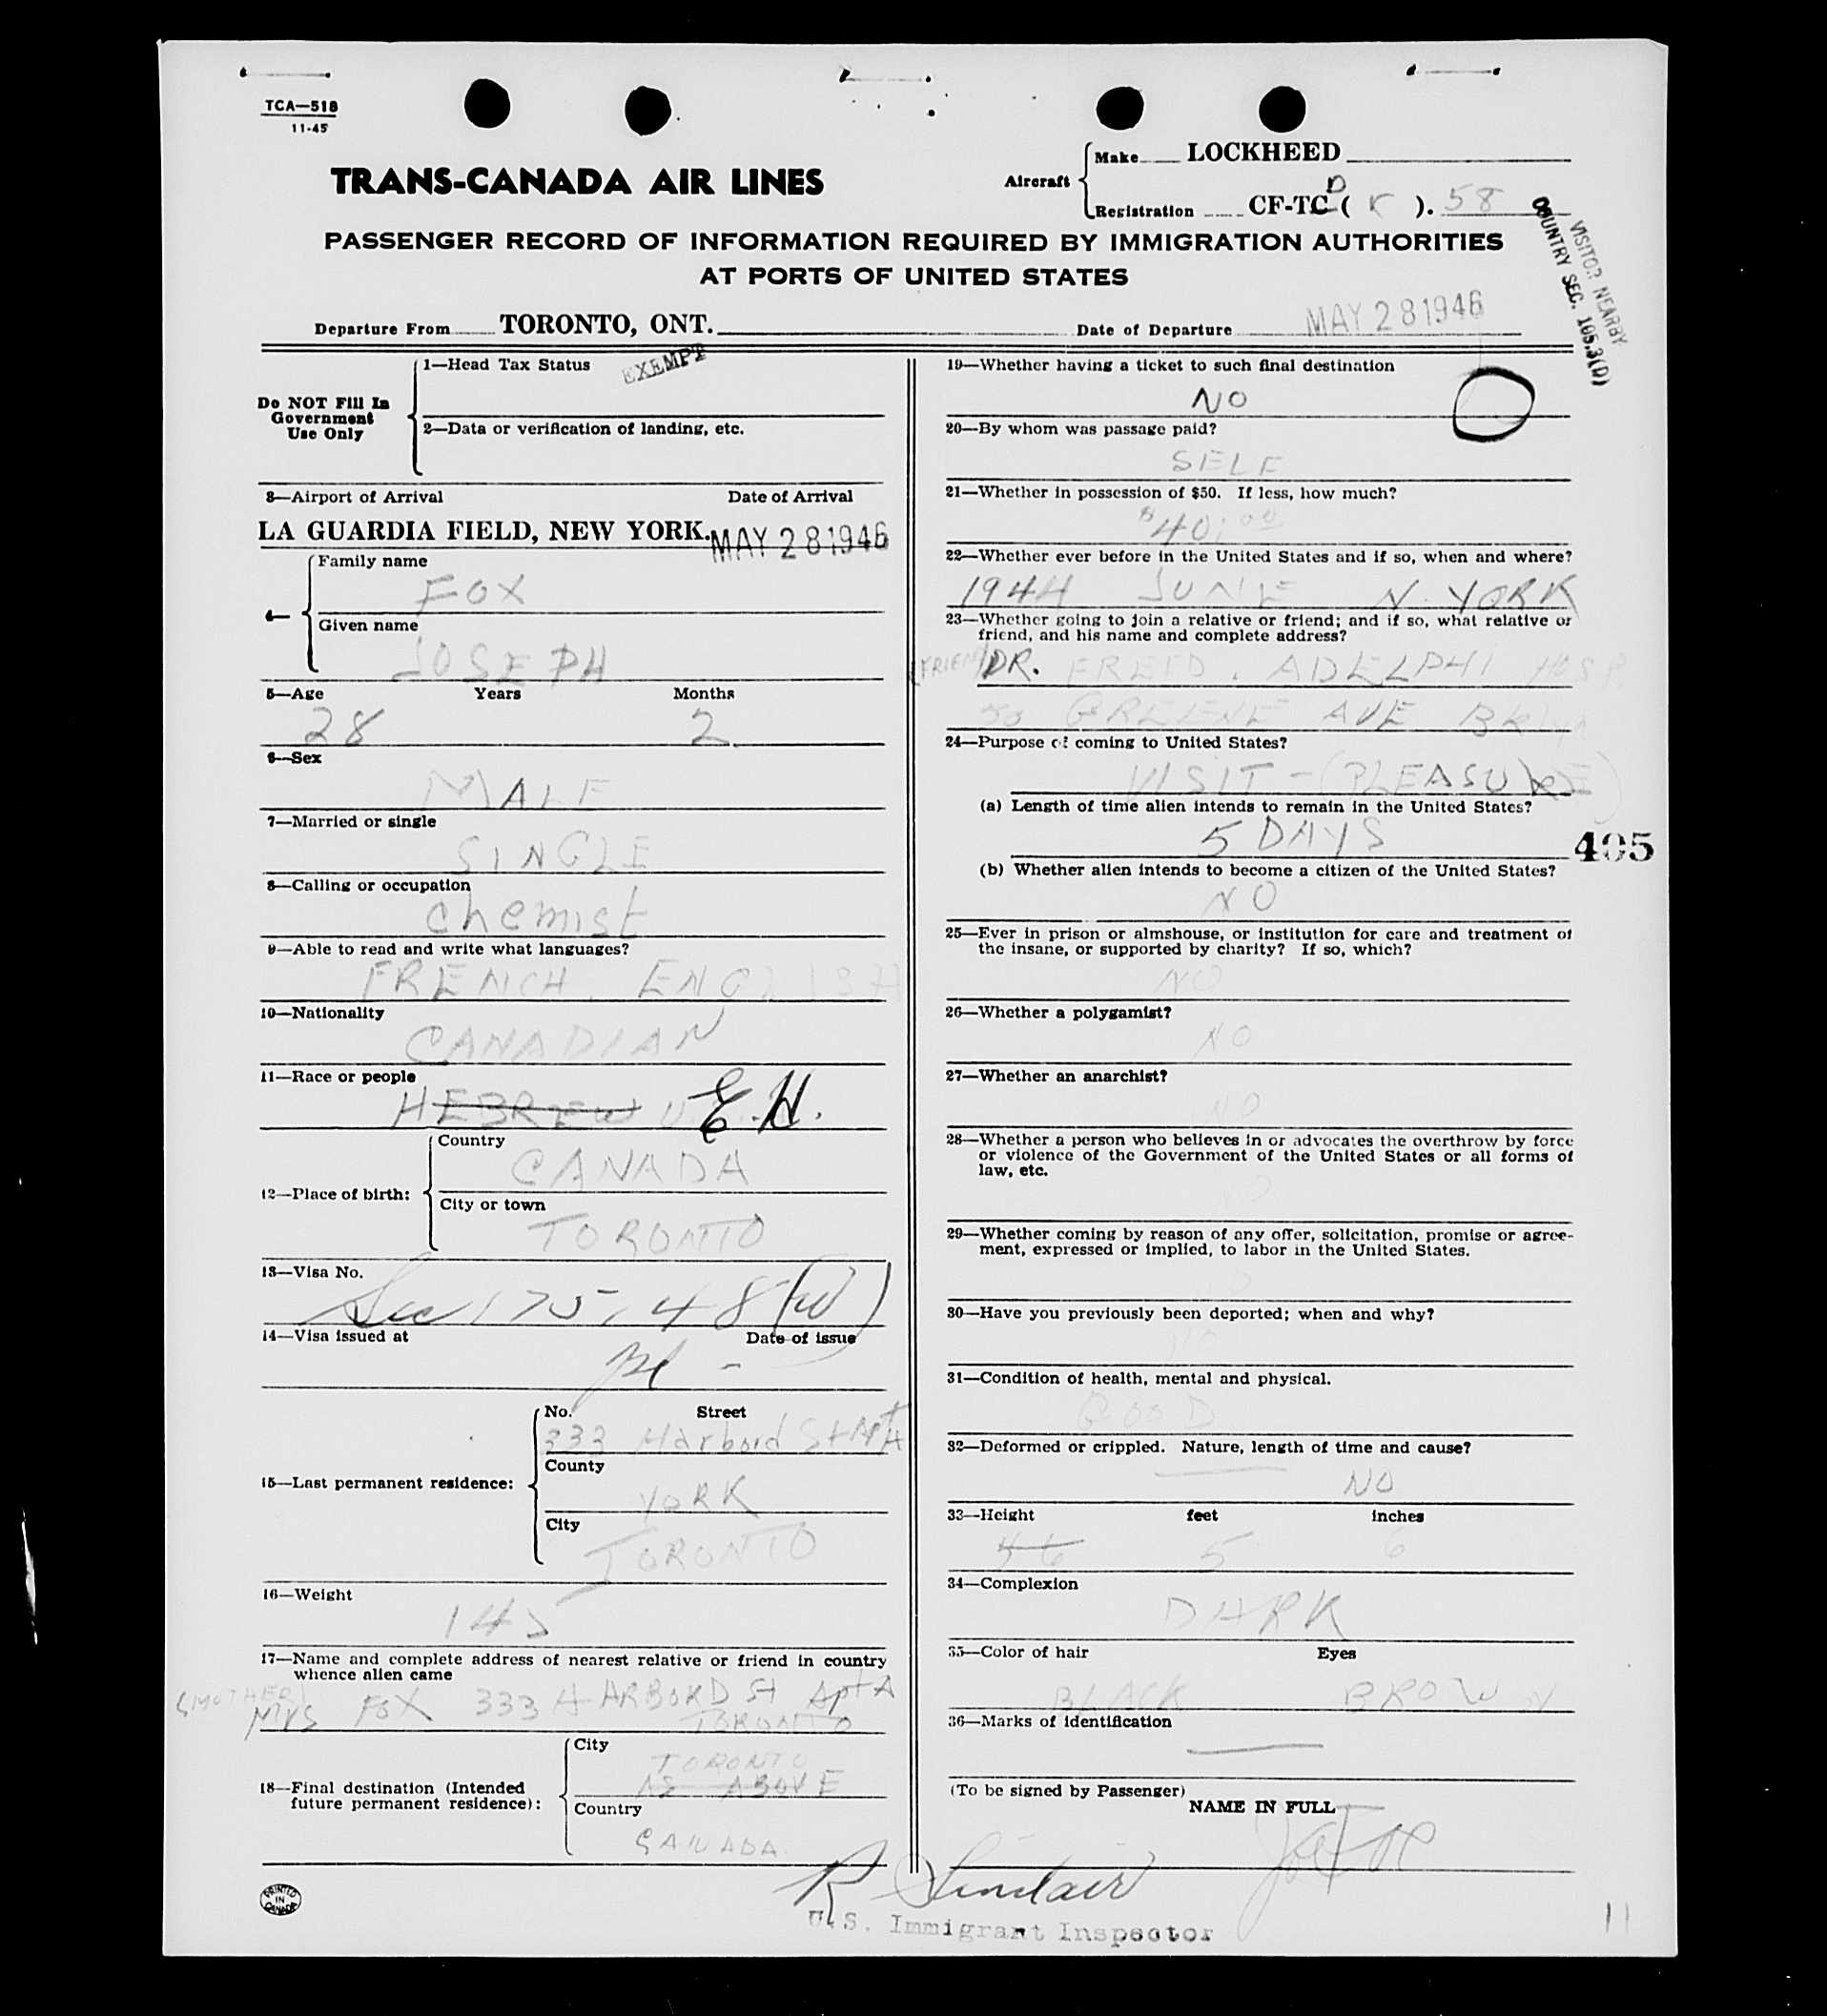 TCA—518
11-45
TRANS-CANADA AIR LINES
Aircraft
Make LOCKHEED
Registration CF-TC D ( K ). 58
VISITOR NEARBY
COUNTRY SEC. 165.3(D)
PASSENGER RECORD OF INFORMATION REQUIRED BY IMMIGRATION AUTHORITIES
AT PORTS OF UNITED STATES
Departure From TORONTO, ONT. Date of Departure MAY 28 1946
Do NOT Fill In
Government
Use Only
1—Head Tax Status EXEMPT
2—Data or verification of landing, etc.
3—Airport of Arrival Date of Arrival
LA GUARDIA FIELD, NEW YORK. MAY 28 1946
4—
Family name
FOX
Given name
JOSEPH
5—Age Years Months
28 2
6—Sex
MALE
7—Married or single
SINGLE
8—Calling or occupation
chemist
9—Able to read and write what languages?
FRENCH. ENGLISH
10—Nationality
CANADIAN
11—Race or people
HEBREW E.H.
12—Place of birth:
Country
CANADA
City or town
TORONTO
13—Visa No.
Sec 175.48(W)
14—Visa issued at Date of issue
15—Last permanent residence:
No. Street
333 Harbord St Apt A
County
YORK
City
TORONTO
16—Weight
145
17—Name and complete address of nearest relative or friend in country
whence alien came
(MOTHER)
Mrs FOX 333 HARBORD St Apt A
TORONTO
18—Final destination (Intended
future permanent residence):
City
TORONTO
AS ABOVE
Country
CANADA
19—Whether having a ticket to such final destination
NO
20—By whom was passage paid?
SELF
21—Whether in possession of $50. If less, how much?
$40.00
22—Whether ever before in the United States and if so, when and where?
1944 JUNE N. YORK
23—Whether going to join a relative or friend; and if so, what relative or
friend, and his name and complete address?
(FRIEND) DR. FREED. ADELPHI HOSP.
50 GREENE AVE BKlyn
24—Purpose of coming to United States?
VISIT - (PLEASURE)
(a) Length of time alien intends to remain in the United States?
5 DAYS
405
(b) Whether alien intends to become a citizen of the United States?
NO
25—Ever in prison or almshouse, or institution for care and treatment of
the insane, or supported by charity? If so, which?
NO
26—Whether a polygamist?
NO
27—Whether an anarchist?
NO
28—Whether a person who believes in or advocates the overthrow by force
or violence of the Government of the United States or all forms of
law, etc.
29—Whether coming by reason of any offer, solicitation, promise or agree-
ment, expressed or implied, to labor in the United States.
30—Have you previously been deported; when and why?
31—Condition of health, mental and physical.
GOOD
32—Deformed or crippled. Nature, length of time and cause?
NO
33—Height feet inches
56 5 6
34—Complexion
DARK
35—Color of hair Eyes
BLACK BROWN
36—Marks of identification
(To be signed by Passenger)
NAME IN FULL
Joe Fox
R Sinclair
U.S. Immigrant Inspector
PRINTED
IN
CANADA
11